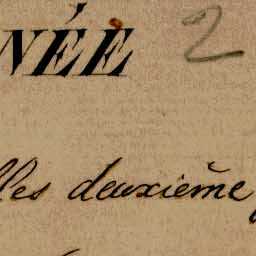 NÉE 2
lles deuxième